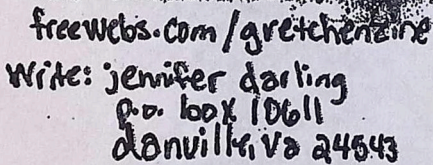 freewebs.com/gretchenzine
Write: jennifer darling
p.o. box 10611
danville, va 24543